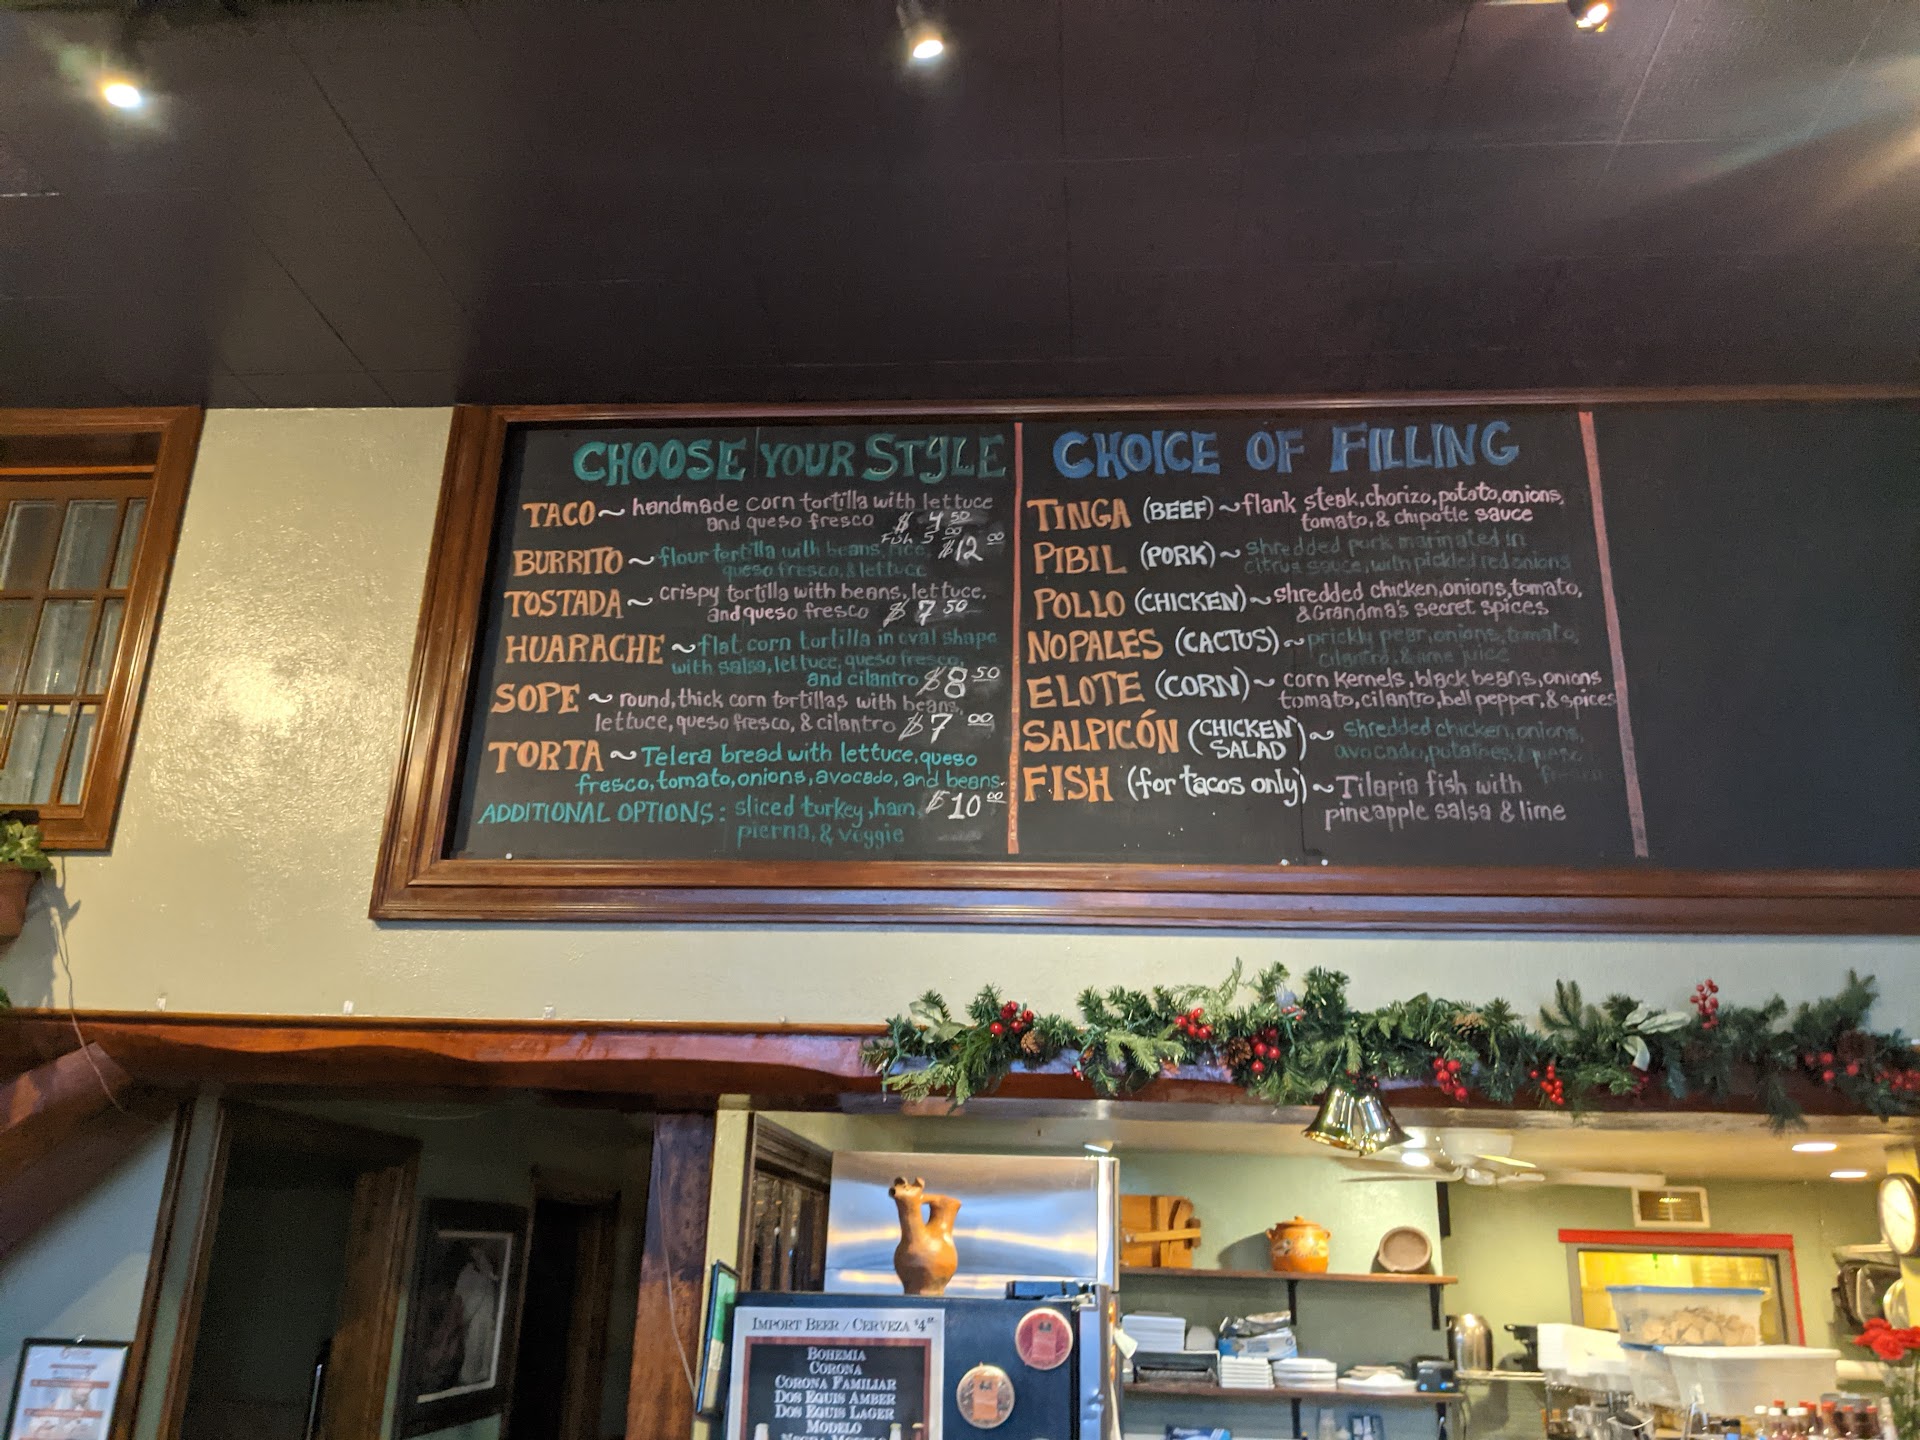 CHOOSE YOUR STYLE
TACO ~ handmade corn tortilla with lettuce
and queso fresco $ 4 50
Fish 5 00
BURRITO ~ flour tortilla with beans, rice, $12 00
queso fresco, & lettuce
TOSTADA ~ crispy tortilla with beans, lettuce,
and queso fresco $ 7 50
HUARACHE ~ flat corn tortilla in oval shape
with salsa, lettuce, queso fresco,
and cilantro $8 50
SOPE ~ round, thick corn tortillas with beans,
lettuce, queso fresco, & cilantro $7 00
TORTA ~ Telera bread with lettuce, queso
fresco, tomato, onions, avocado, and beans.
ADDITIONAL OPTIONS: sliced turkey, ham, $10 00
pierna, & veggie
CHOICE OF FILLING
TINGA (BEEF) ~ flank steak, chorizo, potato, onions,
tomato, & chipotle sauce
PIBIL (PORK) ~ shredded pork marinated in
citrus sauce, with pickled red onions
POLLO (CHICKEN) ~ shredded chicken, onions, tomato,
& Grandma's secret spices
NOPALES (CACTUS) ~ prickly pear, onions, tomato,
cilantro, & lime juice
ELOTE (CORN) ~ corn kernels, black beans, onions
tomato, cilantro, bell pepper, & spices
SALPICÓN (CHICKEN SALAD) ~ shredded chicken, onions,
avocado, potatoes, & queso
FISH (for tacos only) ~ Tilapia fish with
pineapple salsa & lime
IMPORT BEER / CERVEZA $4
BOHEMIA
CORONA
CORONA FAMILIAR
DOS EQUIS AMBER
DOS EQUIS LAGER
MODELO